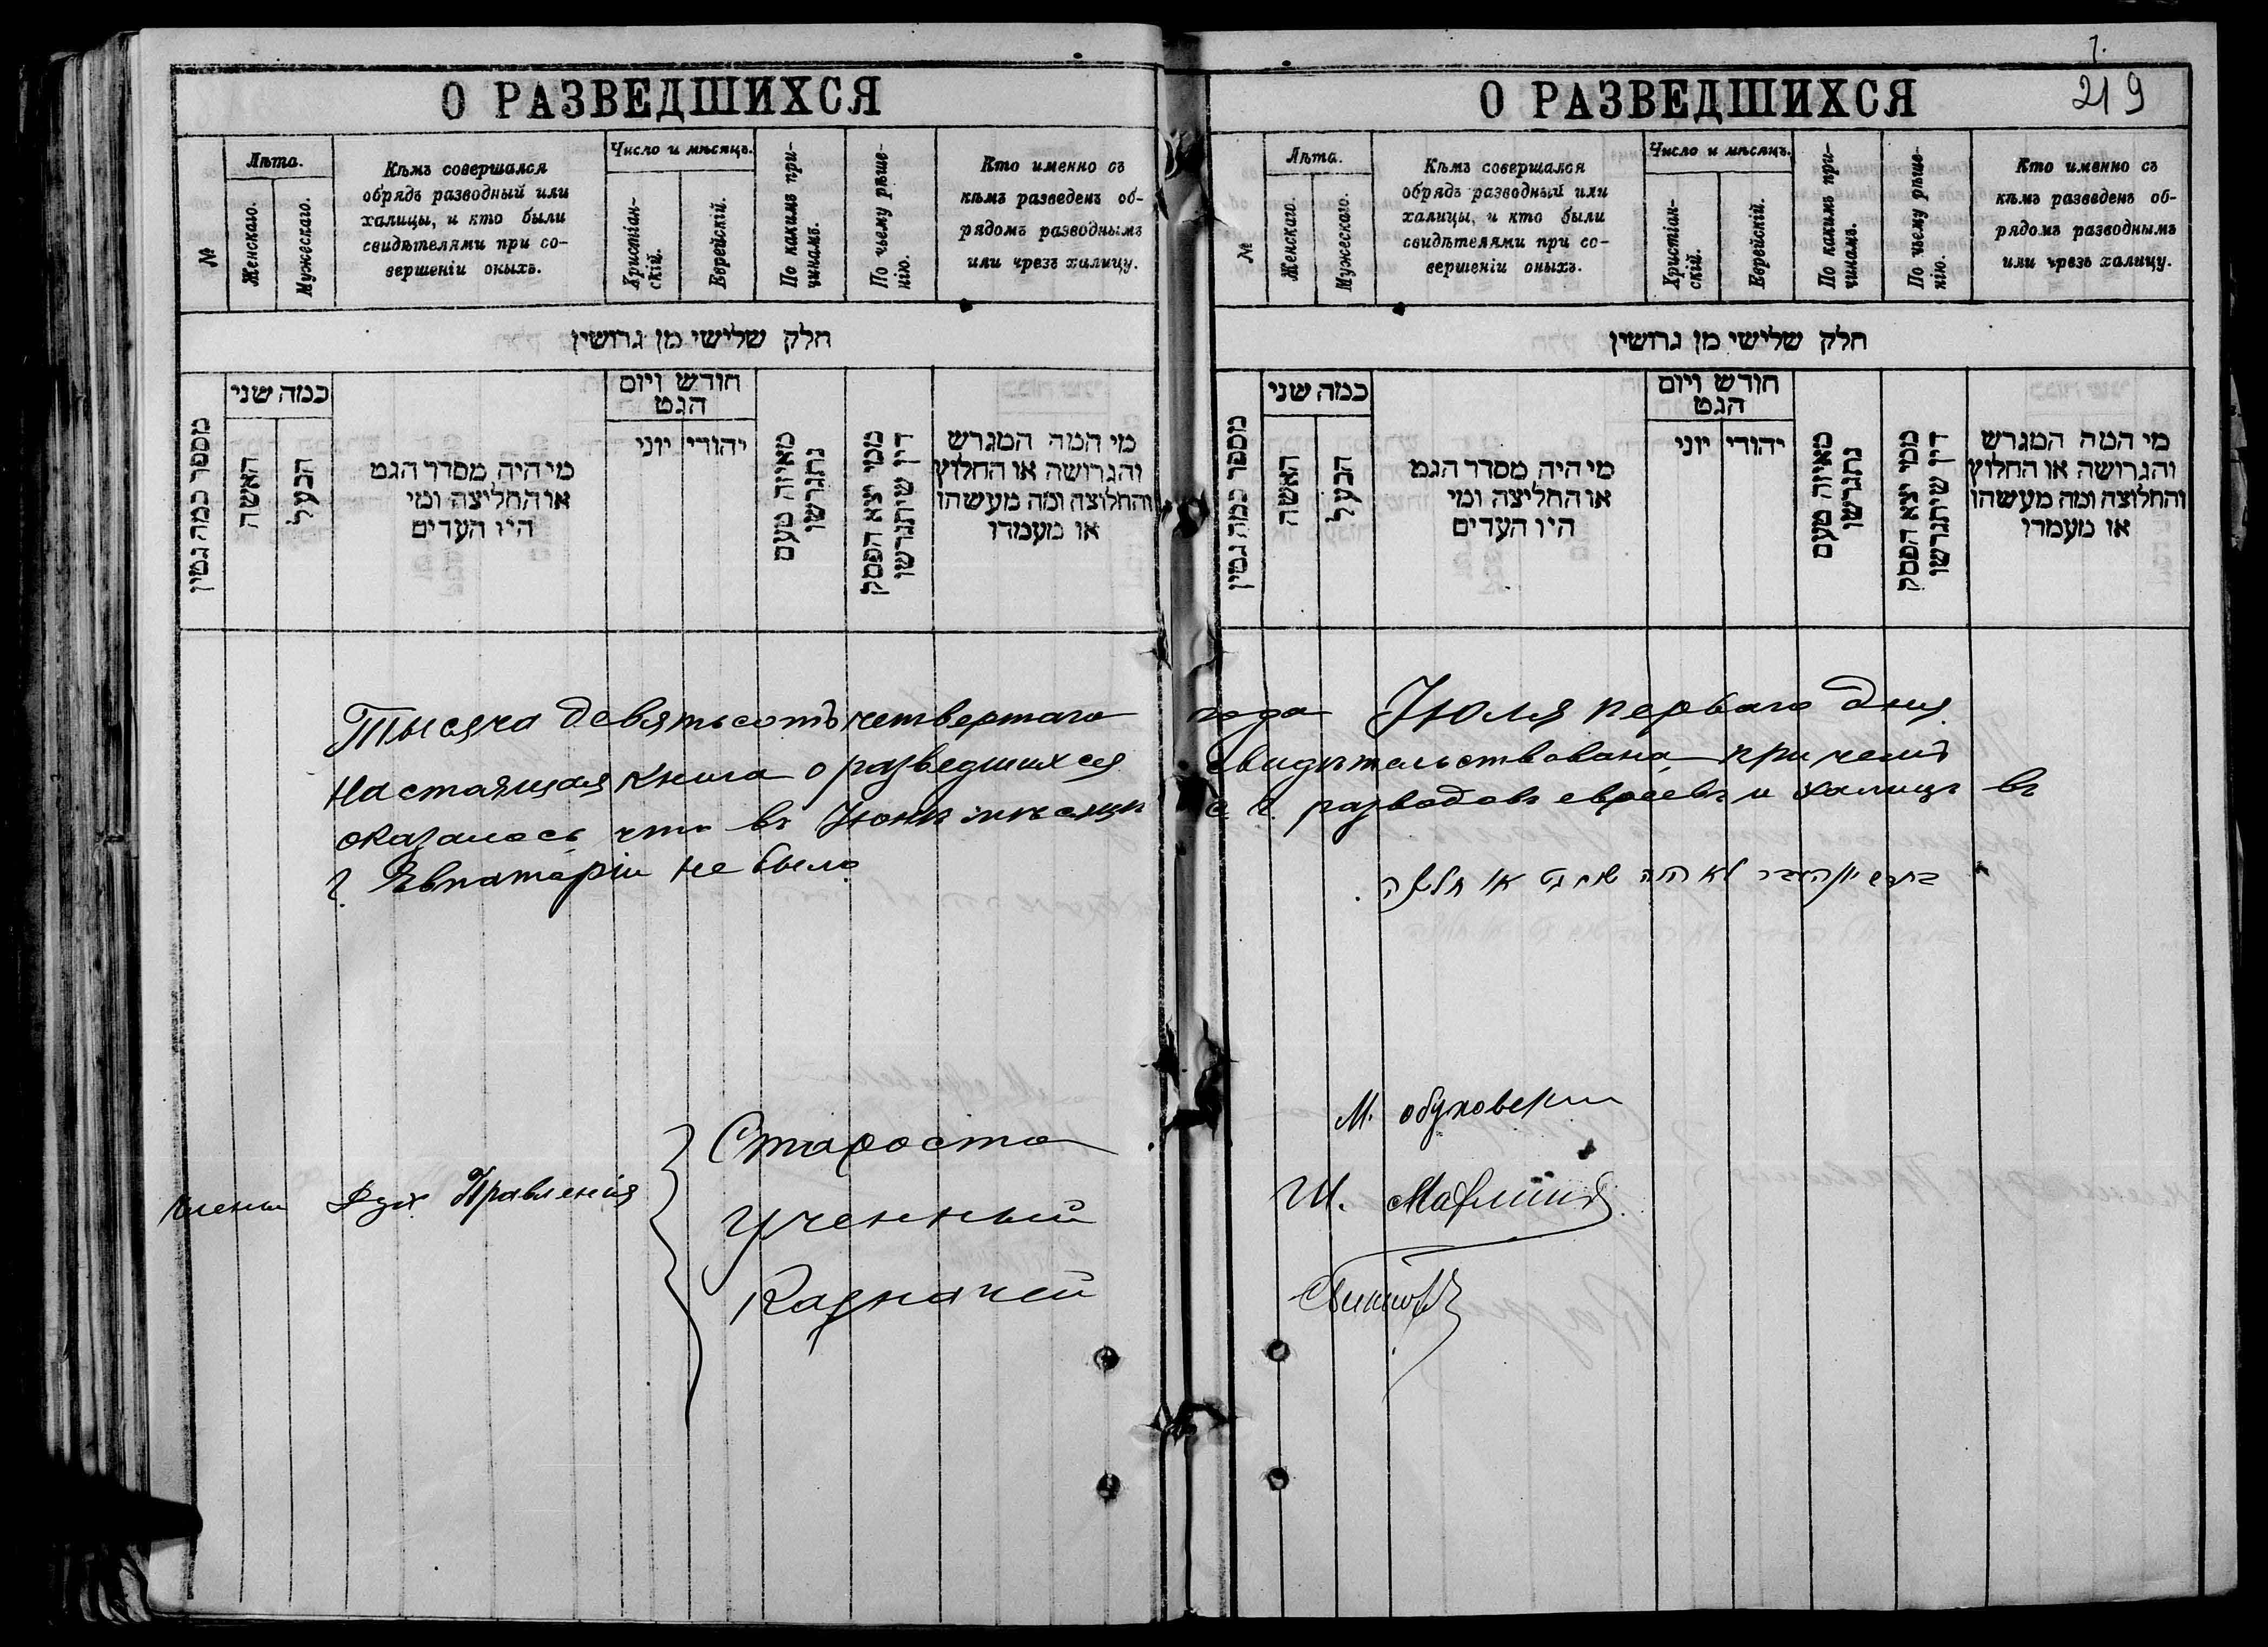 О РАЗВЕДШИХСЯ
№
Лѣта.
Женскаго.
Мужескаго.
Кѣмъ совершался
обрядъ разводный или
халицы, и кто были
свидѣтелями при со-
вершеніи оныхъ.
Число и мѣсяцъ.
Христіан-
скій.
Еврейскій.
По какимъ при-
чинамъ.
По чьему рѣше-
нію.
Кто именно съ
кѣмъ разведенъ об-
рядомъ разводнымъ
или чрезъ халицу.
חלק שלישי מן גרושין
מספר כמה גמין
כמה שני
האשה
הבעל
מי היה מסדר הגט
או החליצה ומי
היו העדים
חודש ויום
הגט
יהודי
יוני
מאיזה טעם
נתגרשו
ממי יצא הפסק
דין שיתגרשו
מי המה המגרש
והגרושה או החלוץ
והחלוצה ומה מעשהו
או מעמדו
О РАЗВЕДШИХСЯ
219
№
Лѣта.
Женскаго.
Мужескаго.
Кѣмъ совершался
обрядъ разводный или
халицы, и кто были
свидѣтелями при со-
вершеніи оныхъ.
Число и мѣсяцъ.
Христіан-
скій.
Еврейскій.
По какимъ при-
чинамъ.
По чьему рѣше-
нію.
Кто именно съ
кѣмъ разведенъ об-
рядомъ разводнымъ
или чрезъ халицу.
חלק שלישי מן גרושין
מספר כמה גמין
כמה שני
האשה
הבעל
מי היה מסדר הגט
או החליצה ומי
היו העדים
חודש ויום
הגט
יהודי
יוני
מאיזה טעם
נתגרשו
ממי יצא הפסק
דין שיתגרשו
מי המה המגרש
והגרושה או החלוץ
והחלוצה ומה מעשהו
או מעמדו
Тысяча девятьсотъ четвертаго года Іюля перваго дня
настоящая книга о разведшихся свидѣтельствована причемъ
оказалось что въ Іюнѣ мѣсяцѣ с. г. разводовъ евреевъ и халицъ въ
г. Евпаторіи не было
לא היה שום גט או חליצה
Члены Дух Правленія
Староста М. Обуховскій
Ученный Ш.
Казначей